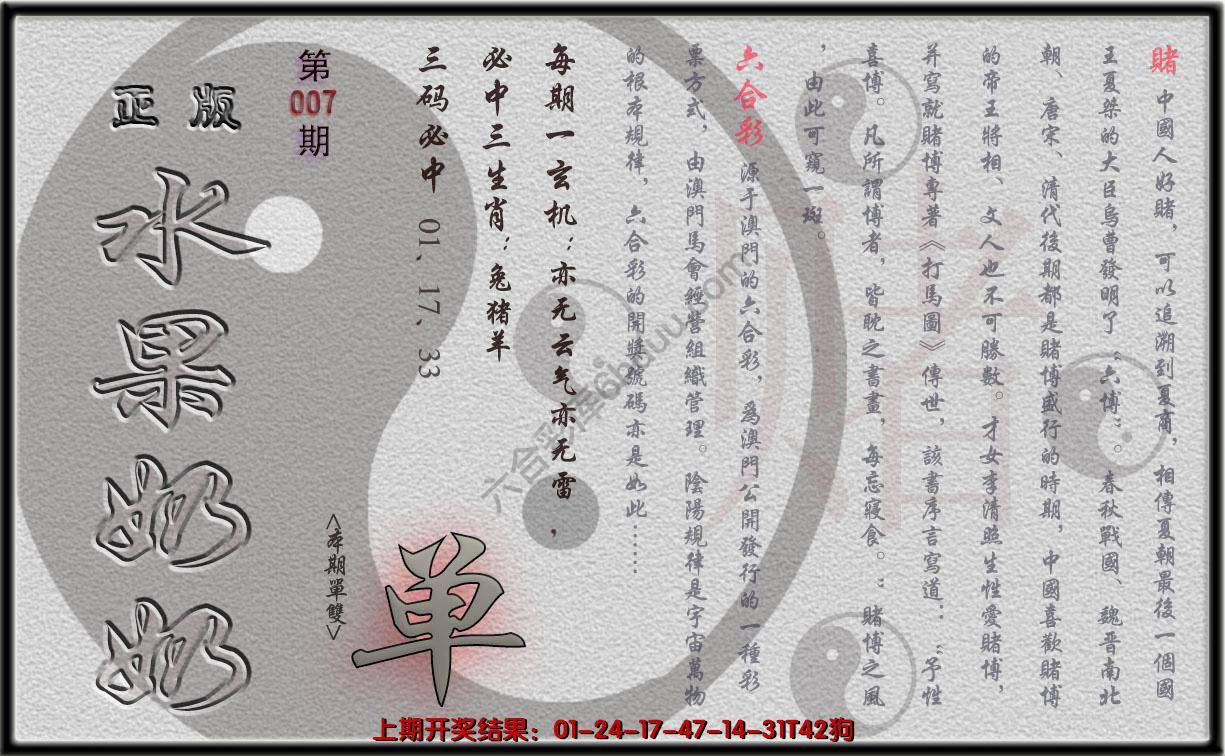 賭 中國人好賭，可以追溯到夏商，相傳夏朝最後一個國
王夏桀的大臣烏曹發明了“六博”。春秋戰國、魏晋南北
朝、唐宋、清代後期都是賭博盛行的時期，中國喜歡賭博
的帝王將相、文人也不可勝數。才女李清照生性愛賭博，
并寫就賭博專著《打馬圖》傳世，該書序言寫道：“予性
喜博。凡所謂博者，皆耽之書畫，每忘寢食。”賭博之風
，由此可窺一斑。
六合彩 源于澳門的六合彩，爲澳門公開發行的一種彩
票方式，由澳門馬會經營組織管理。陰陽規律是宇宙萬物
的根本規律，六合彩的開獎號碼亦是如此……
每期一玄机：亦无云气亦无雷，
必中三生肖：兔猪羊
三码必中 01、17、33
第007期
<本期單雙>
单
正版
水果奶奶
賭
六合彩库6hbuu.com
上期开奖结果：01-24-17-47-14-31T42狗